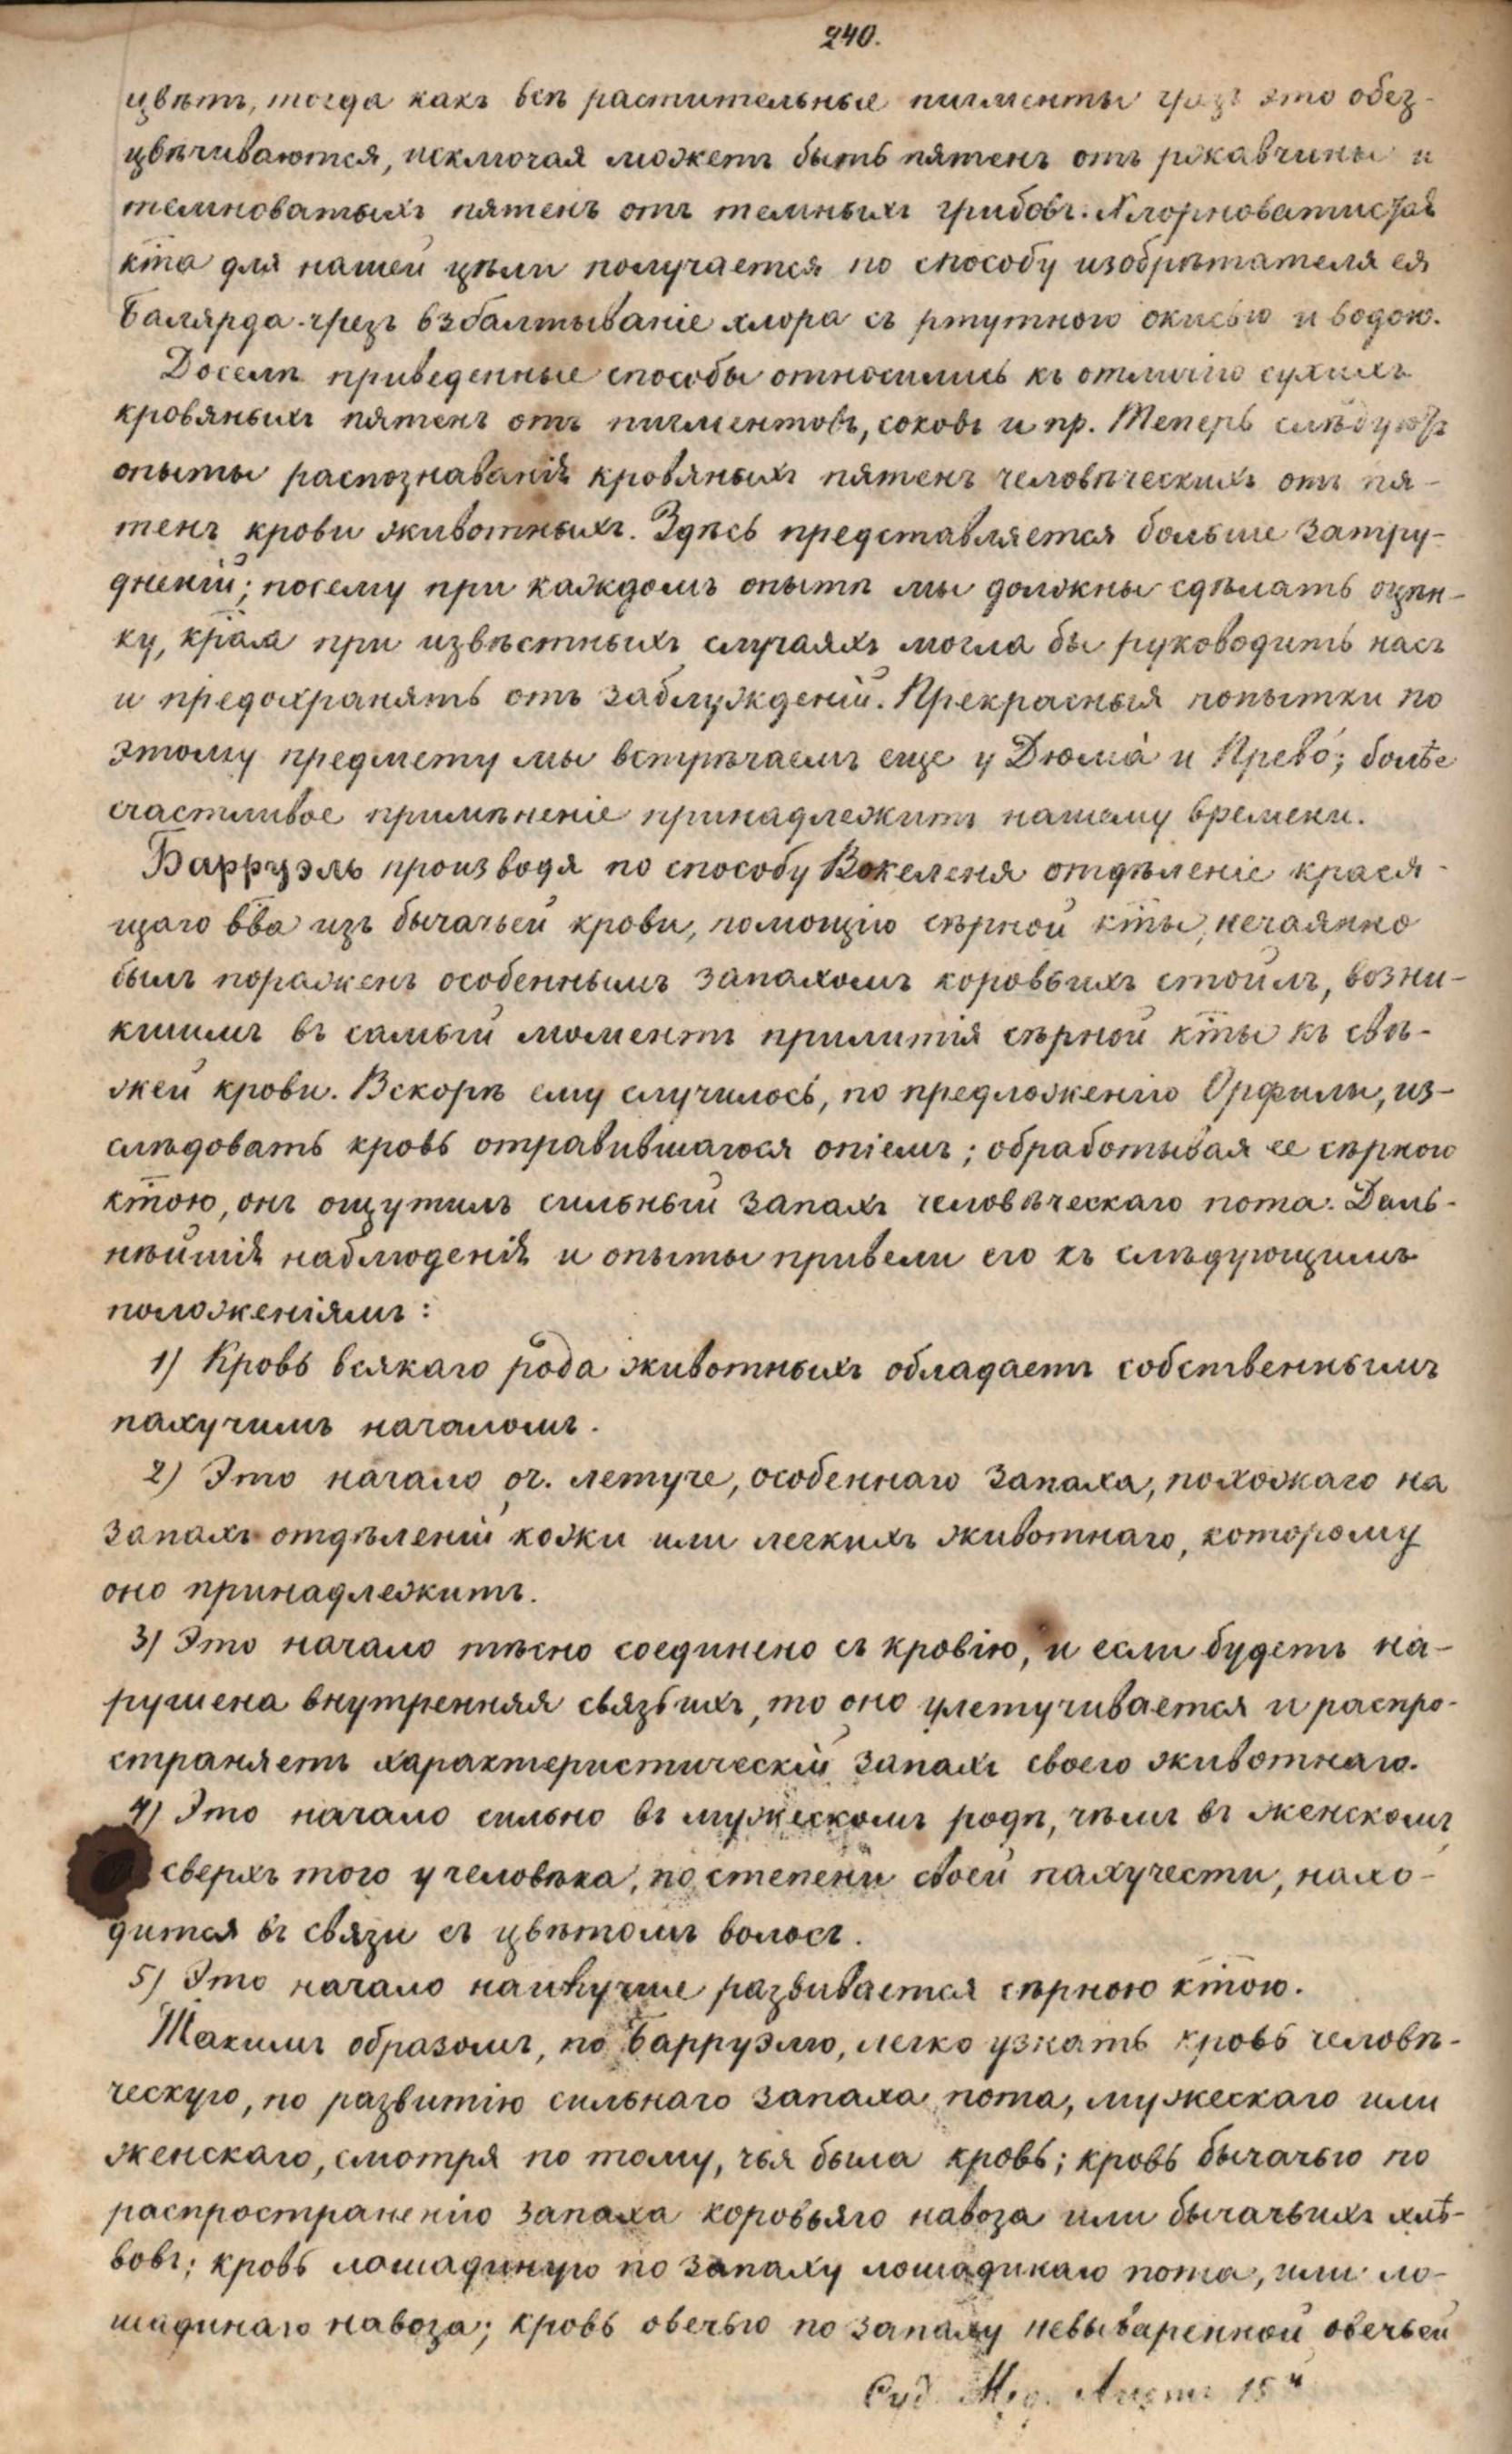 240.
цвѣтъ, тогда какъ всѣ растительные пигменты чрезъ это обез-
цвѣчиваются, исключая можетъ быть пятенъ отъ ржавчины и
темноватыхъ пятенъ отъ темныхъ грибовъ. Хлорноватистая
кта для нашей цѣли получается по способу изобрѣтателя ея
Балярда чрезъ взбалтываніе хлора съ ртутною окисью и водою.
Доселѣ приведенные способы относились къ отличію сухихъ
кровяныхъ пятенъ отъ пигментовъ, соковъ и пр. Теперь слѣдуютъ
опыты распознаванія кровяныхъ пятенъ человѣческихъ отъ пя-
тенъ крови животныхъ. Здѣсь представляется больше затру-
дненій; посему при каждомъ опытѣ мы должны сдѣлать оцѣн-
ку, края при извѣстныхъ случаяхъ могла бы руководить насъ
и предохранять отъ заблужденій. Прекрасныя попытки по
этому предмету мы встрѣчаемъ еще у Дюма́ и Прево́; болѣе
счастливое примѣненіе принадлежитъ нашему времени.
Барруэль производя по способу Вокеленя отдѣленіе крася-
щаго вва изъ бычачьей крови, помощію сѣрной кты, нечаянно
былъ пораженъ особеннымъ запахомъ коровьихъ стойлъ, возни-
кшимъ въ самый моментъ прилитія сѣрной кты къ свѣ-
жей крови. Вскорѣ ему случилось, по предложенію Орфилы, из-
слѣдовать кровь отравившагося опіемъ; обработывая ее сѣрною
ктою, онъ ощутилъ сильный запахъ человѣческаго пота. Даль-
нѣйшія наблюденія и опыты привели его къ слѣдующимъ
положеніямъ:
1) Кровь всякаго рода животныхъ обладаетъ собственнымъ
пахучимъ началомъ.
2) Это начало оч. летуче, особеннаго запаха, похожаго на
запахъ отдѣленій кожи или легкихъ животнаго, которому
оно принадлежитъ.
3) Это начало тѣсно соединено съ кровію, и если будетъ на-
рушена внутренняя связь ихъ, то оно улетучивается и распро-
страняетъ характеристическій запахъ своего животнаго.
4) Это начало сильно въ мужескомъ родѣ, чѣмъ въ женскомъ,
сверхъ того у человѣка, по степени своей пахучести, нахо-
дится въ связи съ цвѣтомъ волосъ.
5) Это начало наилучше развивается сѣрною ктою.
Такимъ образомъ, по Барруэлю, легко узнать кровь человѣ-
ческую, по развитію сильнаго запаха пота, мужескаго или
женскаго, смотря по тому, чья была кровь; кровь бычачью по
распространенію запаха коровьяго навоза или бычачьихъ хлѣ-
вовъ; кровь лошадиную по запаху лошадинаго пота, или ло-
шадинаго навоза; кровь овечью по запаху невываренной овечьей
Суд. Мед. Листъ 15й